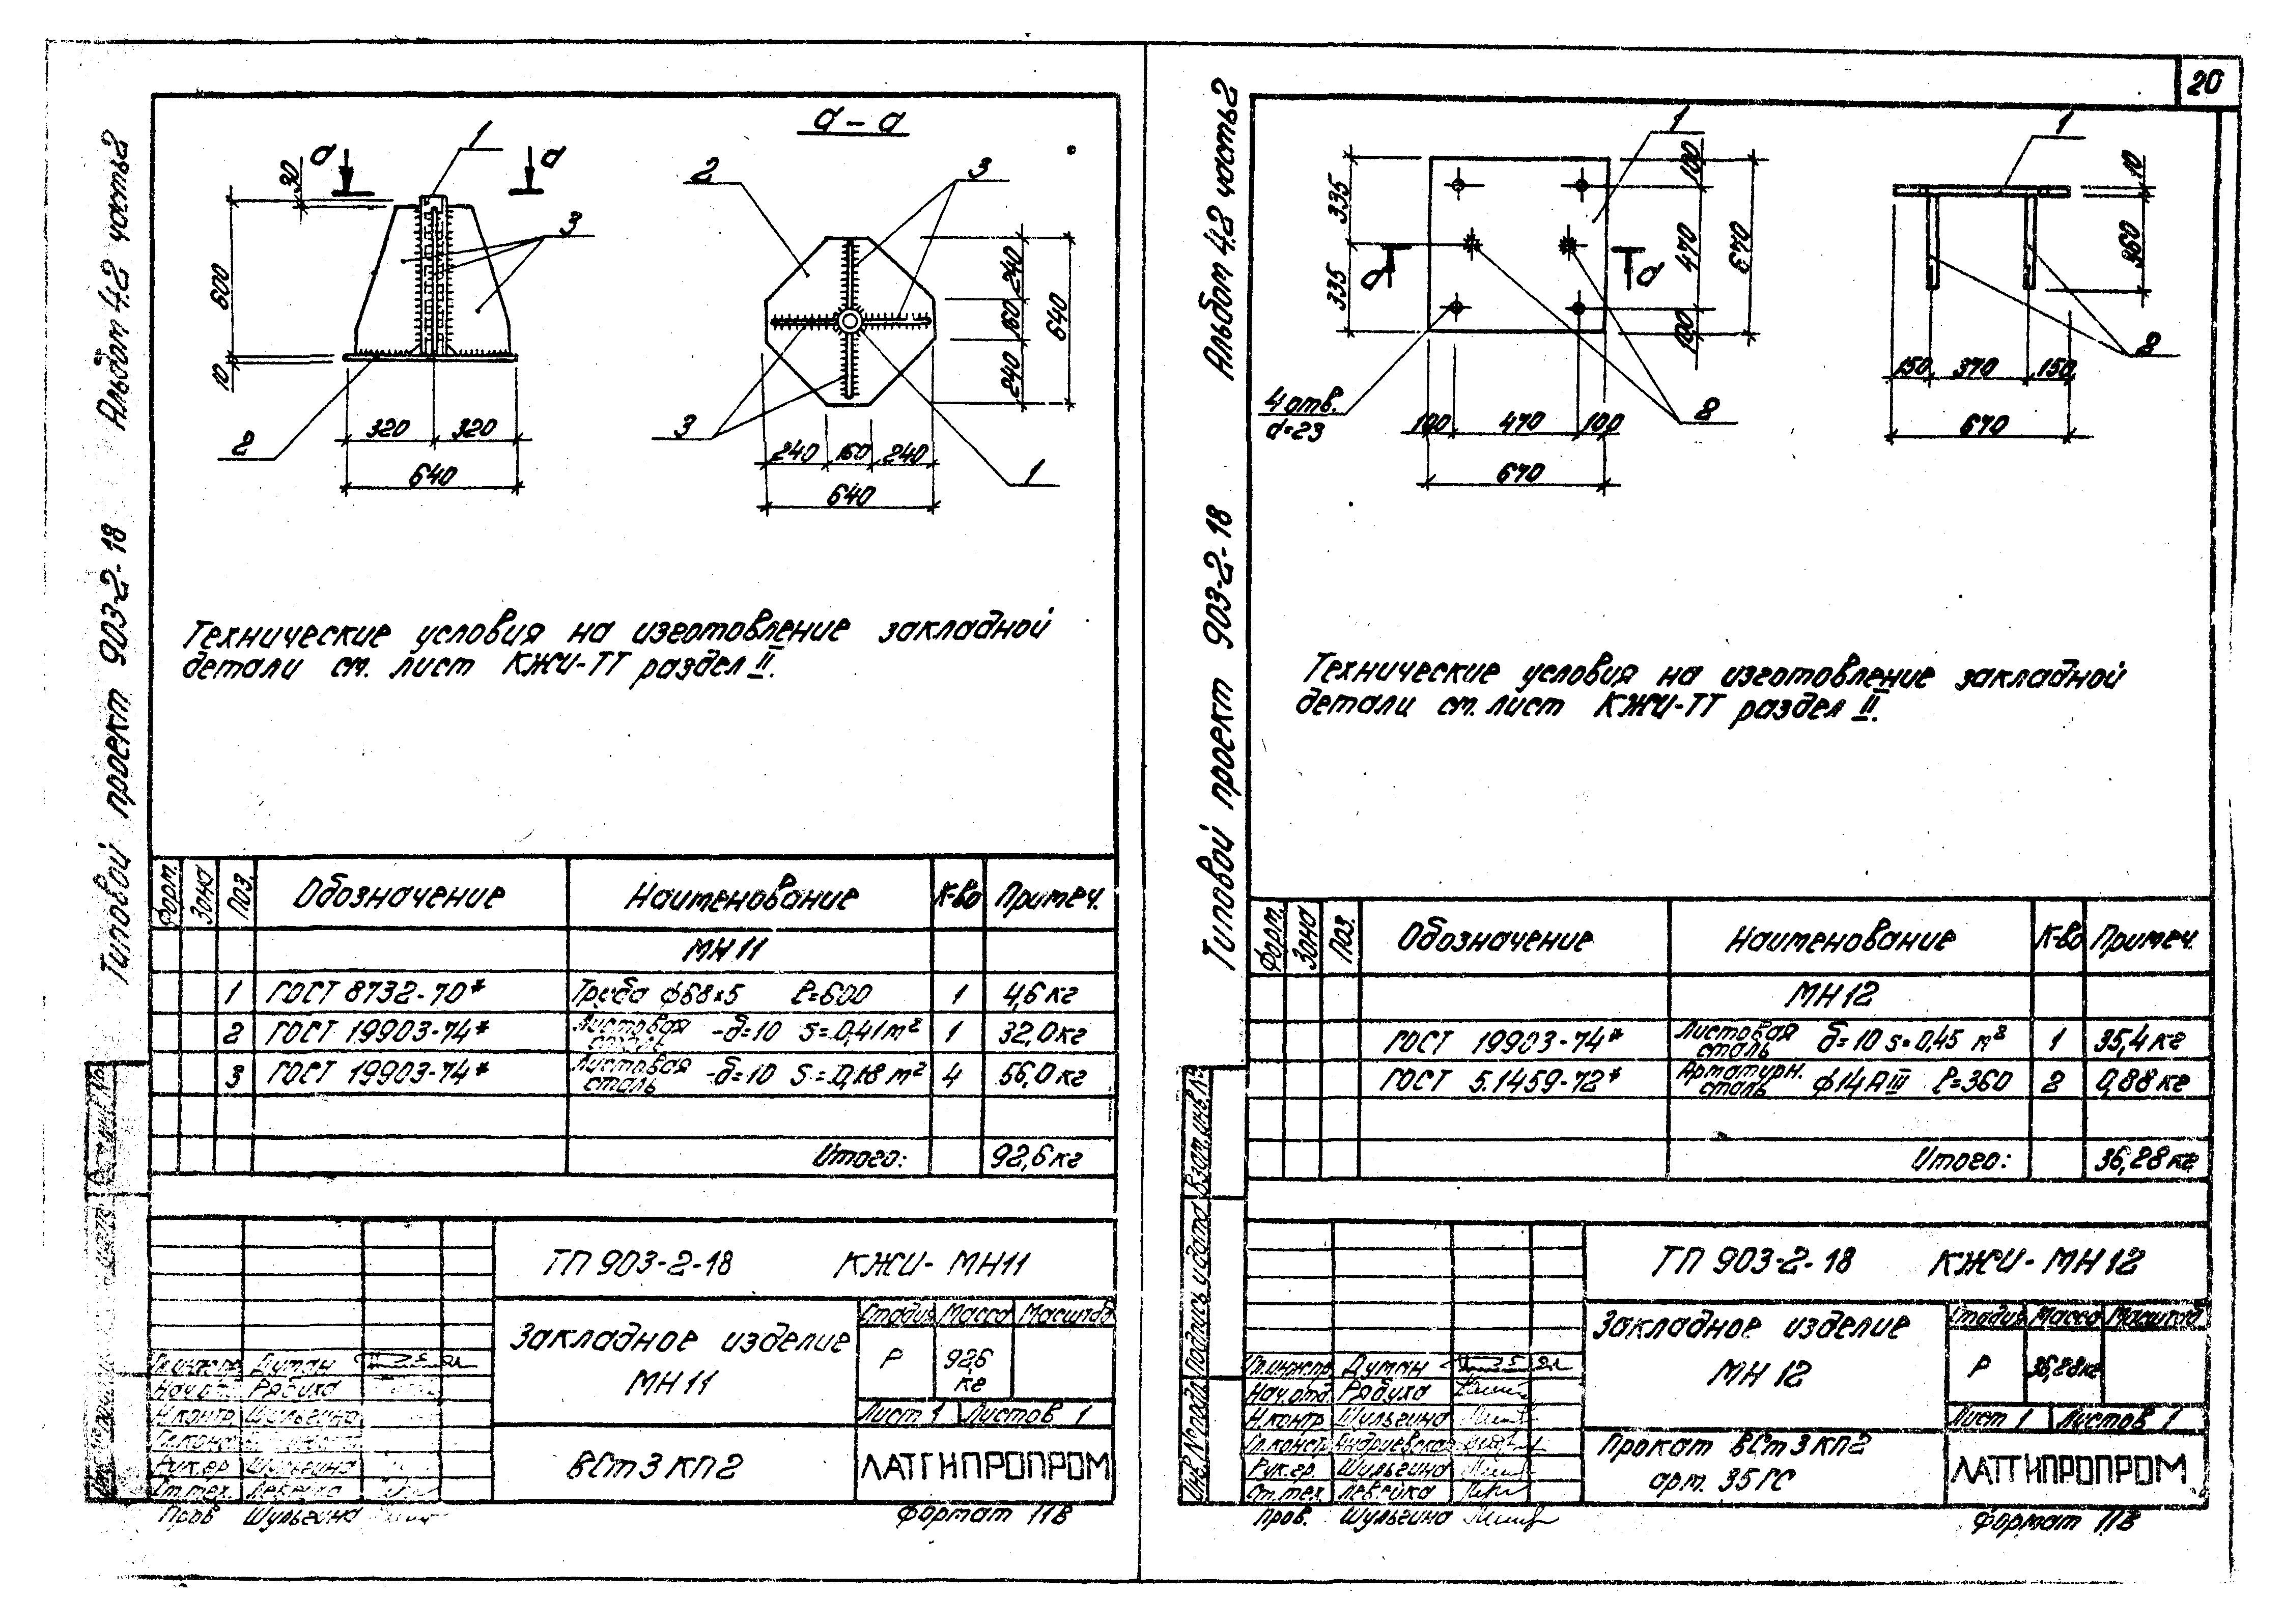 20
Альбом 4.2 часть 2
Типовой проект 903-2-18
а – а
1
а
а
30
600
10
3
2
320
320
640
2
3
240
160
240
640
3
1
240
160
240
640
Технические условия на изготовление закладной
детали см. лист КЖИ-ТТ раздел II.
Форм. Зона Поз. Обозначение Наименование К-во Примеч.
МН 11
1 ГОСТ 8732-70* Труба ф68×5 ℓ=600 1 4,6 кг
2 ГОСТ 19903-74* Листовая сталь -δ=10 S=0,41 м² 1 32,0 кг
3 ГОСТ 19903-74* Листовая сталь -δ=10 S=0,18 м² 4 56,0 кг
Итого: 92,6 кг
ТП 903-2-18 КЖИ- МН11
Закладное изделие
МН 11
Стадия Масса Масштаб
Р 92,6 кг
Лист 1 Листов 1
ВСт 3 КП 2
ЛАТГИПРОПРОМ
Гл.инж.пр. Дутан
Нач.от. Рябуха
Н.контр. Шульгина
Рук.гр. Шульгина
Ст.тех. Левейка
Пров. Шульгина
Формат 11В
Альбом 4.2 часть 2
Типовой проект 903-2-18
1
335
335
100
470
100
670
а
а
4 отв.
d=23
8
100
470
100
670
1
10
360
8
150
370
150
670
Технические условия на изготовление закладной
детали см. лист КЖИ-ТТ раздел II.
Форм. Зона Поз. Обозначение Наименование К-во Примеч.
МН 12
ГОСТ 19903-74* Листовая сталь δ=10 s=0,45 м² 1 35,4 кг
ГОСТ 5.1459-72* Арматурн. сталь ф14 АIII ℓ=360 2 0,88 кг
Итого: 36,28 кг
ТП 903-2-18 КЖИ- МН 12
Закладное изделие
МН 12
Стадия Масса Масштаб
Р 36,28 кг
Лист 1 Листов 1
Прокат ВСт 3 КП 2
арм. 35 ГС
ЛАТГИПРОПРОМ
Гл.инж.пр. Дутан
Нач.отд. Рябуха
Н.контр. Шульгина
Гл.констр. Андриевская
Рук.гр. Шульгина
Ст.тех. Левейка
Пров. Шульгина
Инв.№ подл. Подпись и дата Взам.инв.№
Формат 11В